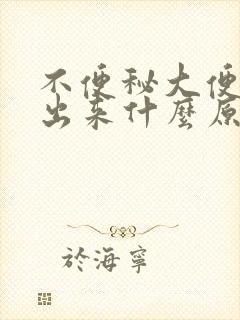 不便秘大便
出来什麽原
於海寧